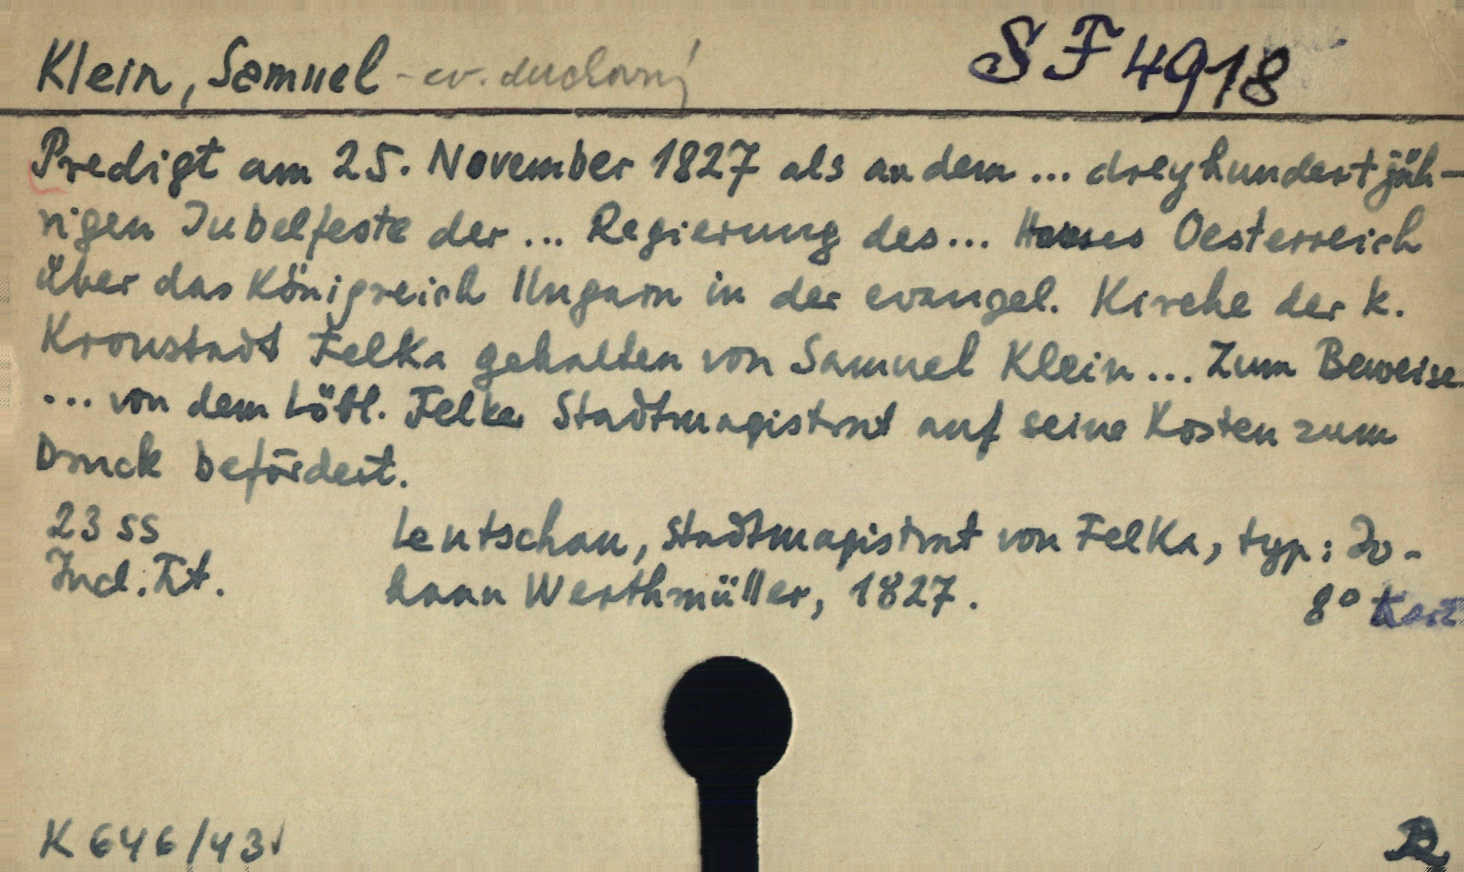 Klein, Samuel - ev. duchovný
SF 4918
Predigt am 25. November 1827 als an dem ... dreyhundertjäh-
rigen Jubelfeste der ... Regierung des ... Hauses Oesterreich
über das Königreich Ungarn in der evangel. Kirche der k.
Kronstadt Felka gehalten von Samuel Klein ... Zum Beweise
... von dem Löbl. Felka Stadtmagistrat auf seine Kosten zum
Druck befördert.
23 ss
Leutschau, Stadtmagistrat von Felka, typ: Jo-
Incl. Tit.
hann Werthmüller, 1827.
8° Kart
K 646/43